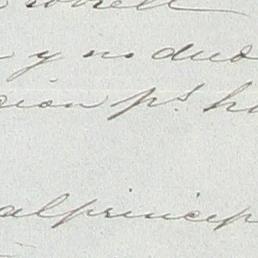 y no dud
sion ps. h
al princip